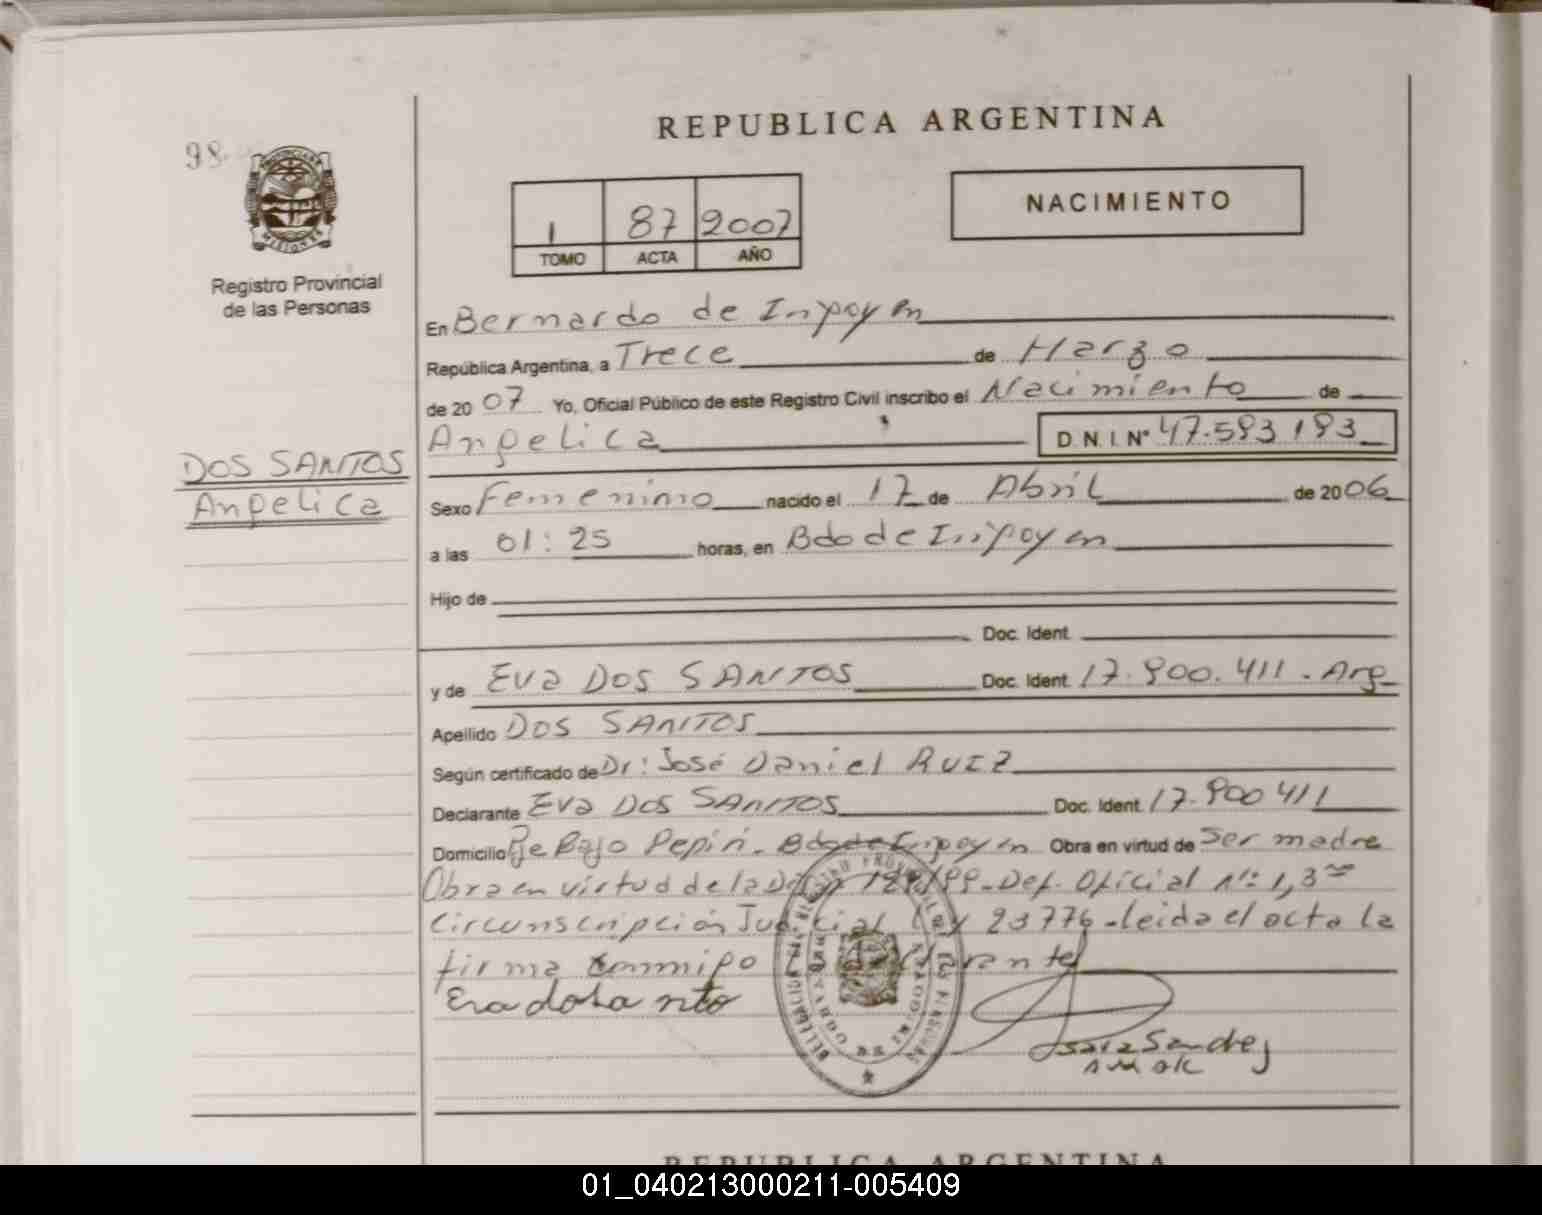 REPUBLICA ARGENTINA
98
NACIMIENTO
1 87 2007
TOMO ACTA AÑO
PROVINCIA DE MISIONES
Registro Provincial
de las Personas
En Bernardo de Irigoyen
República Argentina, a Trece de Marzo
de 2007 Yo, Oficial Público de este Registro Civil inscribo el Nacimiento de
Angelica D.N.I. N° 47.593 193
DOS SANTOS
Angelica
Sexo Femenino nacido el 17 de Abril de 2006
a las 01:25 horas, en Bdo de Irigoyen
Hijo de
Doc. Ident.
y de Eva DOS SANTOS Doc. Ident. 17.900.411.Arg
Apellido DOS SANTOS
Según certificado de Dr: José Daniel RUIZ
Declarante Eva DOS SANTOS Doc. Ident. 17.900 411
Domicilio Pje Bajo Pepiri. Bdo de Irigoyen Obra en virtud de Ser madre
Obra en virtud de la /99-Def. Oficial N°: 1, 3ra
Circunscripción Judicial Ley 23776-leida el acta la
firma conmigo
Eva do Sa nto
Sanchez
REPUBLICA ARGENTINA
01_040213000211-005409